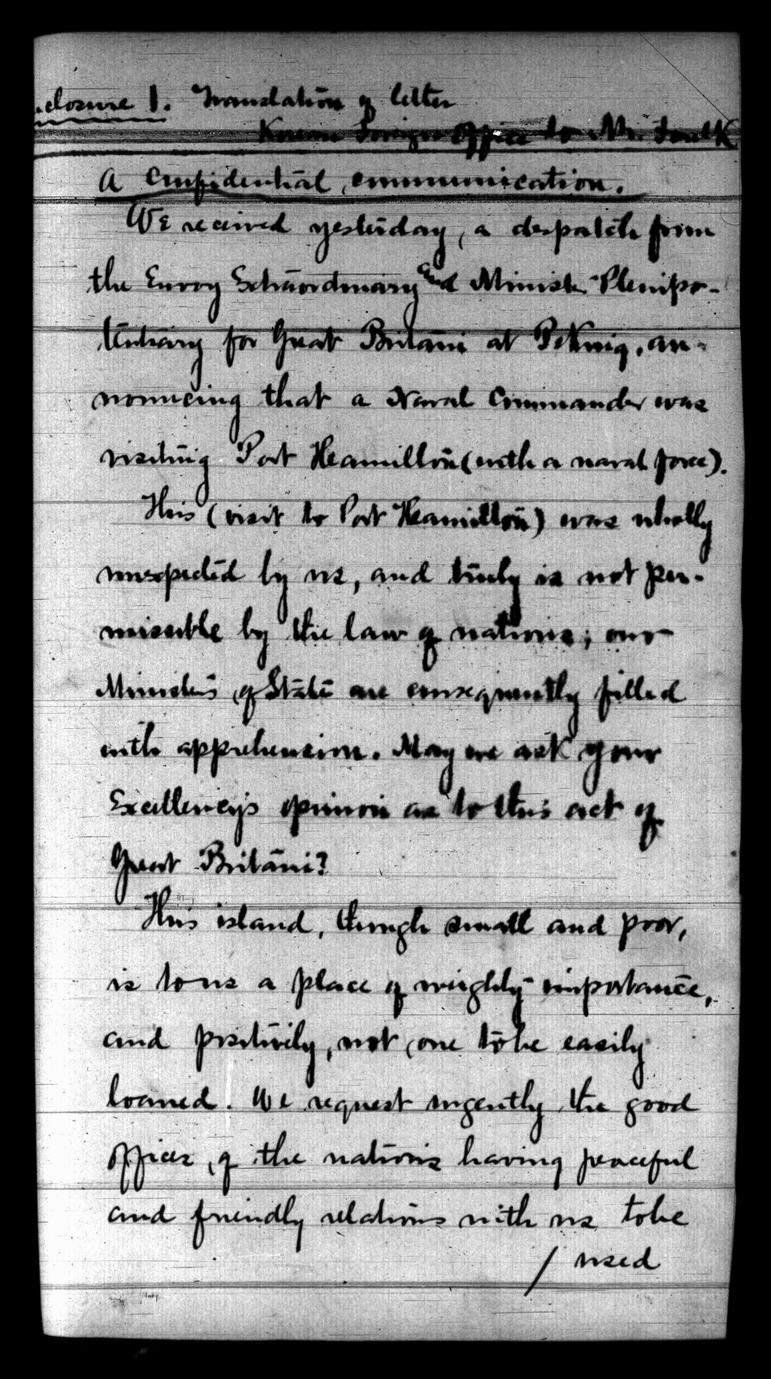 closure 1. Translation of letter
Korean Foreign Office to Mr. Foulk
A confidential communication.
We received yesterday, a despatch from
the Envoy Extraordinary and Minister Plenipo-
tentiary for Great Britain at Peking, an-
nouncing that a Naval Commander was
visiting Port Heamilton (with a naval force).
This (visit to Port Heamilton) was wholly
unexpected by us, and truly is not per-
missible by the law of nations; our
Ministers of State are consequently filled
with apprehension. May we ask your
Excellency's opinion as to this act of
Great Britain?
This island, though small and poor,
is to us a place of weighty importance,
and positively, not one to be easily
loaned. We request urgently the good
offices of the nations having peaceful
and friendly relations with us to be
/ used